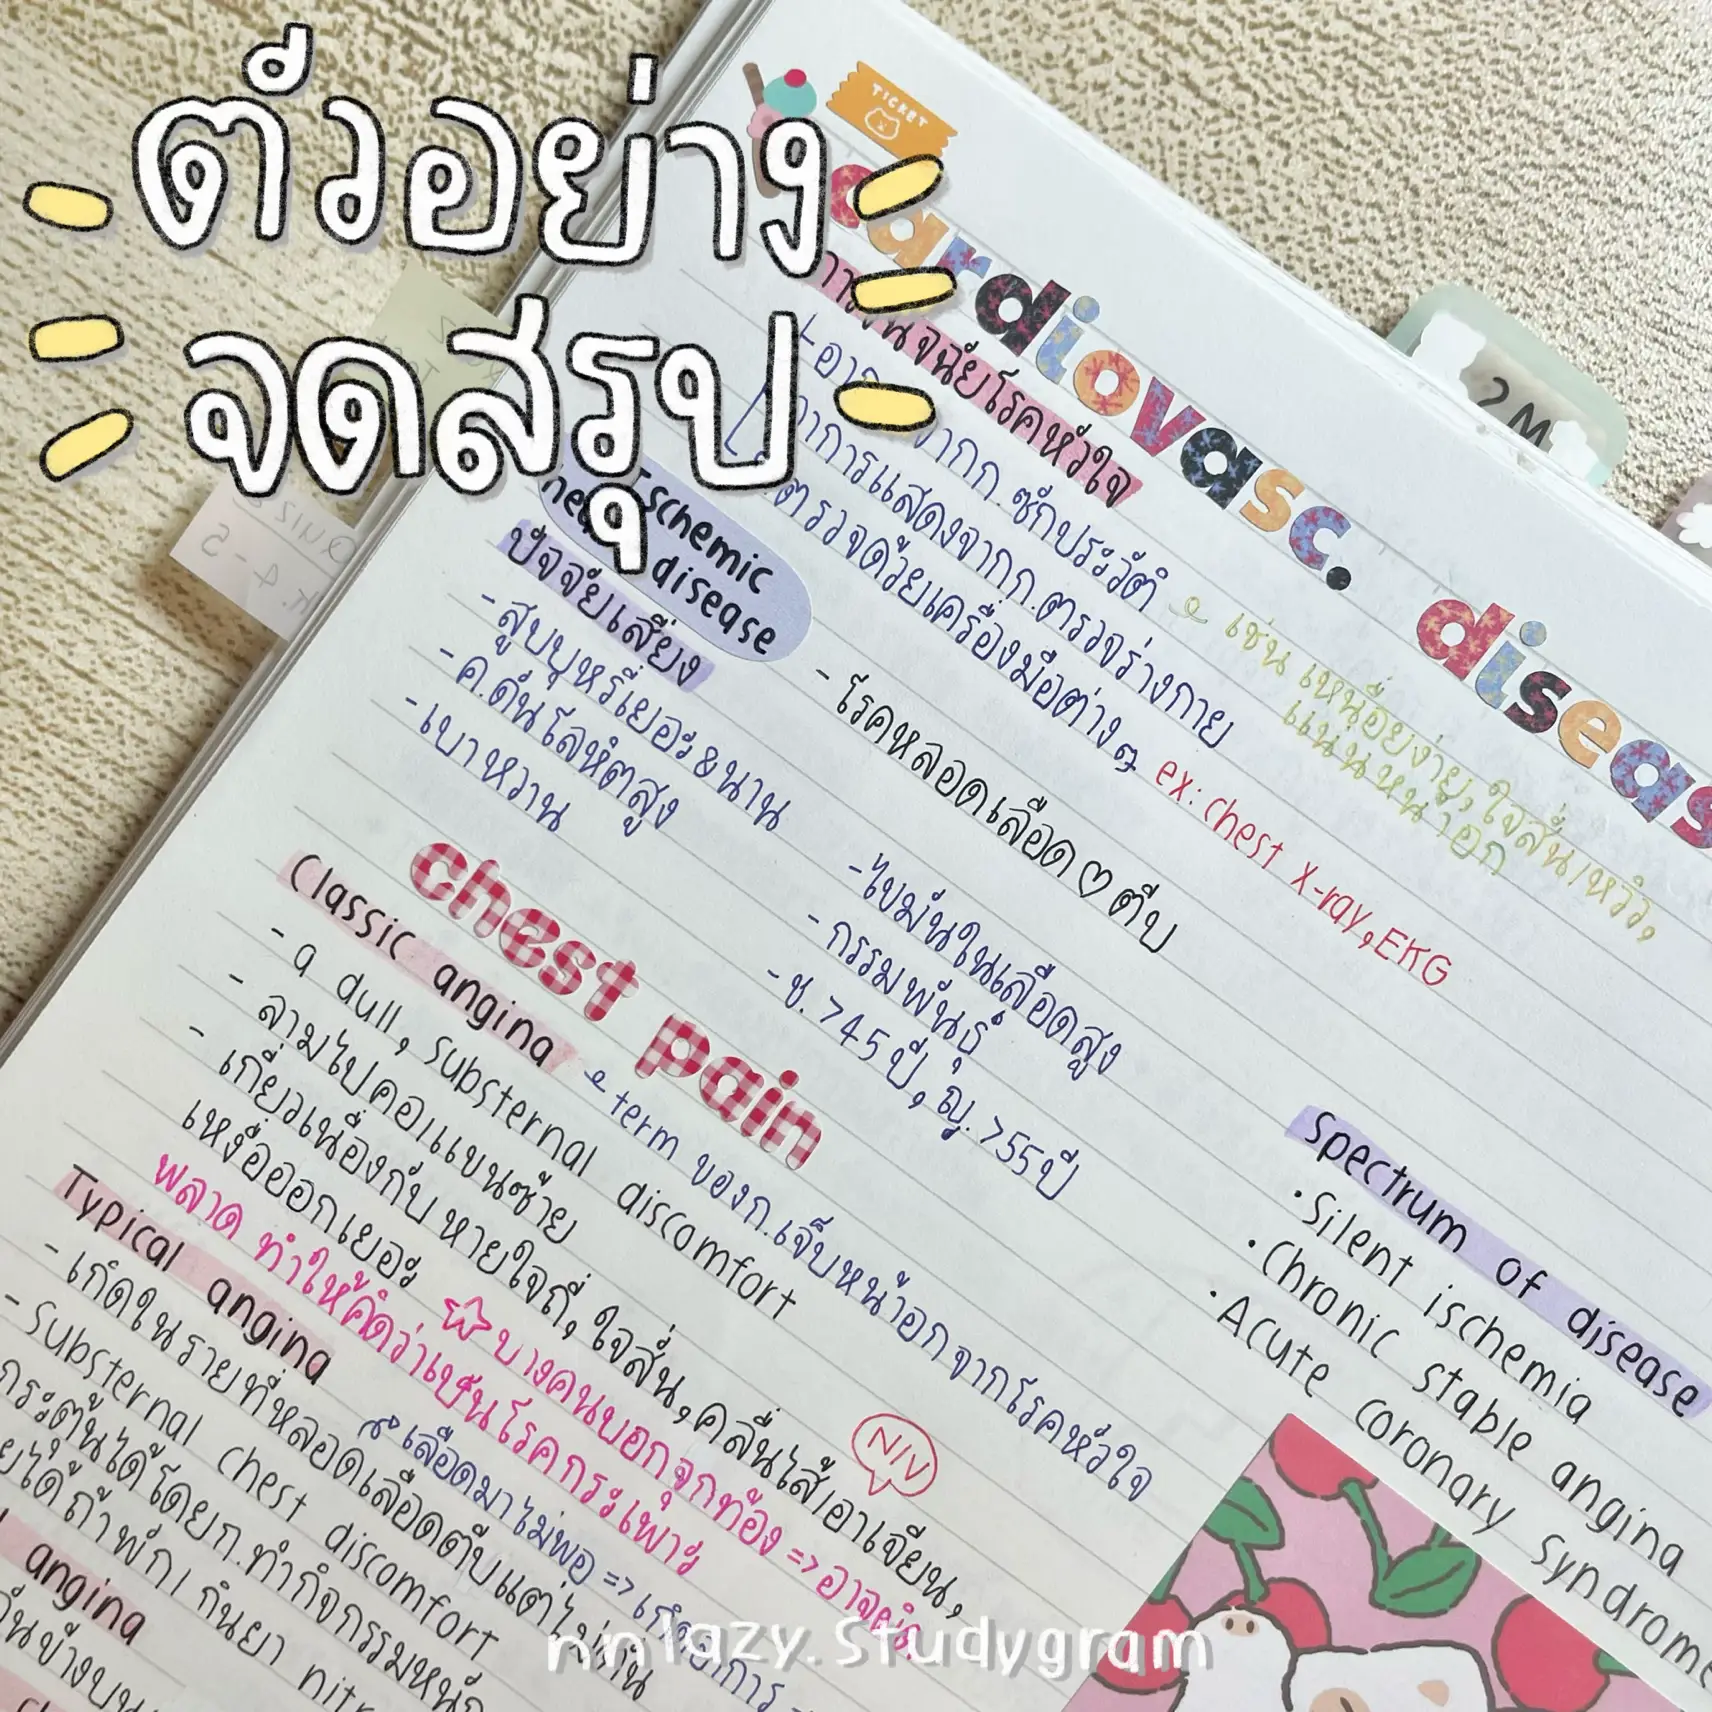 ตัวอย่าง
จดสรุป
TICKET
cardiovasc. diseas
โรคหัวใจ
ซักประวัติ เช่น เหนื่อยง่าย, ใจสั่น/หวิว,
แน่นหน้าอก
อาการแสดงจากก.ตรวจร่างกาย
ตรวจด้วยเครื่องมือต่างๆ ex: chest x-ray, EKG
2M
Ischemic
disease
- โรคหลอดเลือด♡ตีบ
ปัจจัยเสี่ยง
- สูบบุหรี่เยอะ&นาน
- ค.ดันโลหิตสูง
- เบาหวาน
- ไขมันในเลือดสูง
- กรรมพันธุ์
- ช. >45 ปี, ญ. >55 ปี
Spectrum of disease
• Silent ischemia
• Chronic stable angina
• Acute coronary syndrome
chest pain
Classic angina term ของก.เจ็บหน้าอกจากโรคหัวใจ
- a dull, substernal discomfort
- ลามไปคอ/แขนซ้าย
- เกี่ยวเนื่องกับ หายใจถี่, ใจสั่น, คลื่นไส้/อาเจียน,
N/V
เหงื่อออกเยอะ ☆ บางคนบอกจุกท้อง => อาจผิด
พลาด ทำให้คิดว่าเป็นโรคกระเพาะ
Typical angina เลือดมาไม่พอ =>
- เกิดในรายที่หลอดเลือดตีบแต่ไม่ตัน
- Substernal chest discomfort
กระตุ้นได้โดยก.ทำกิจกรรมหนัก
ได้ถ้าพัก/กินยา nitr
angina
nnlazy.studygram